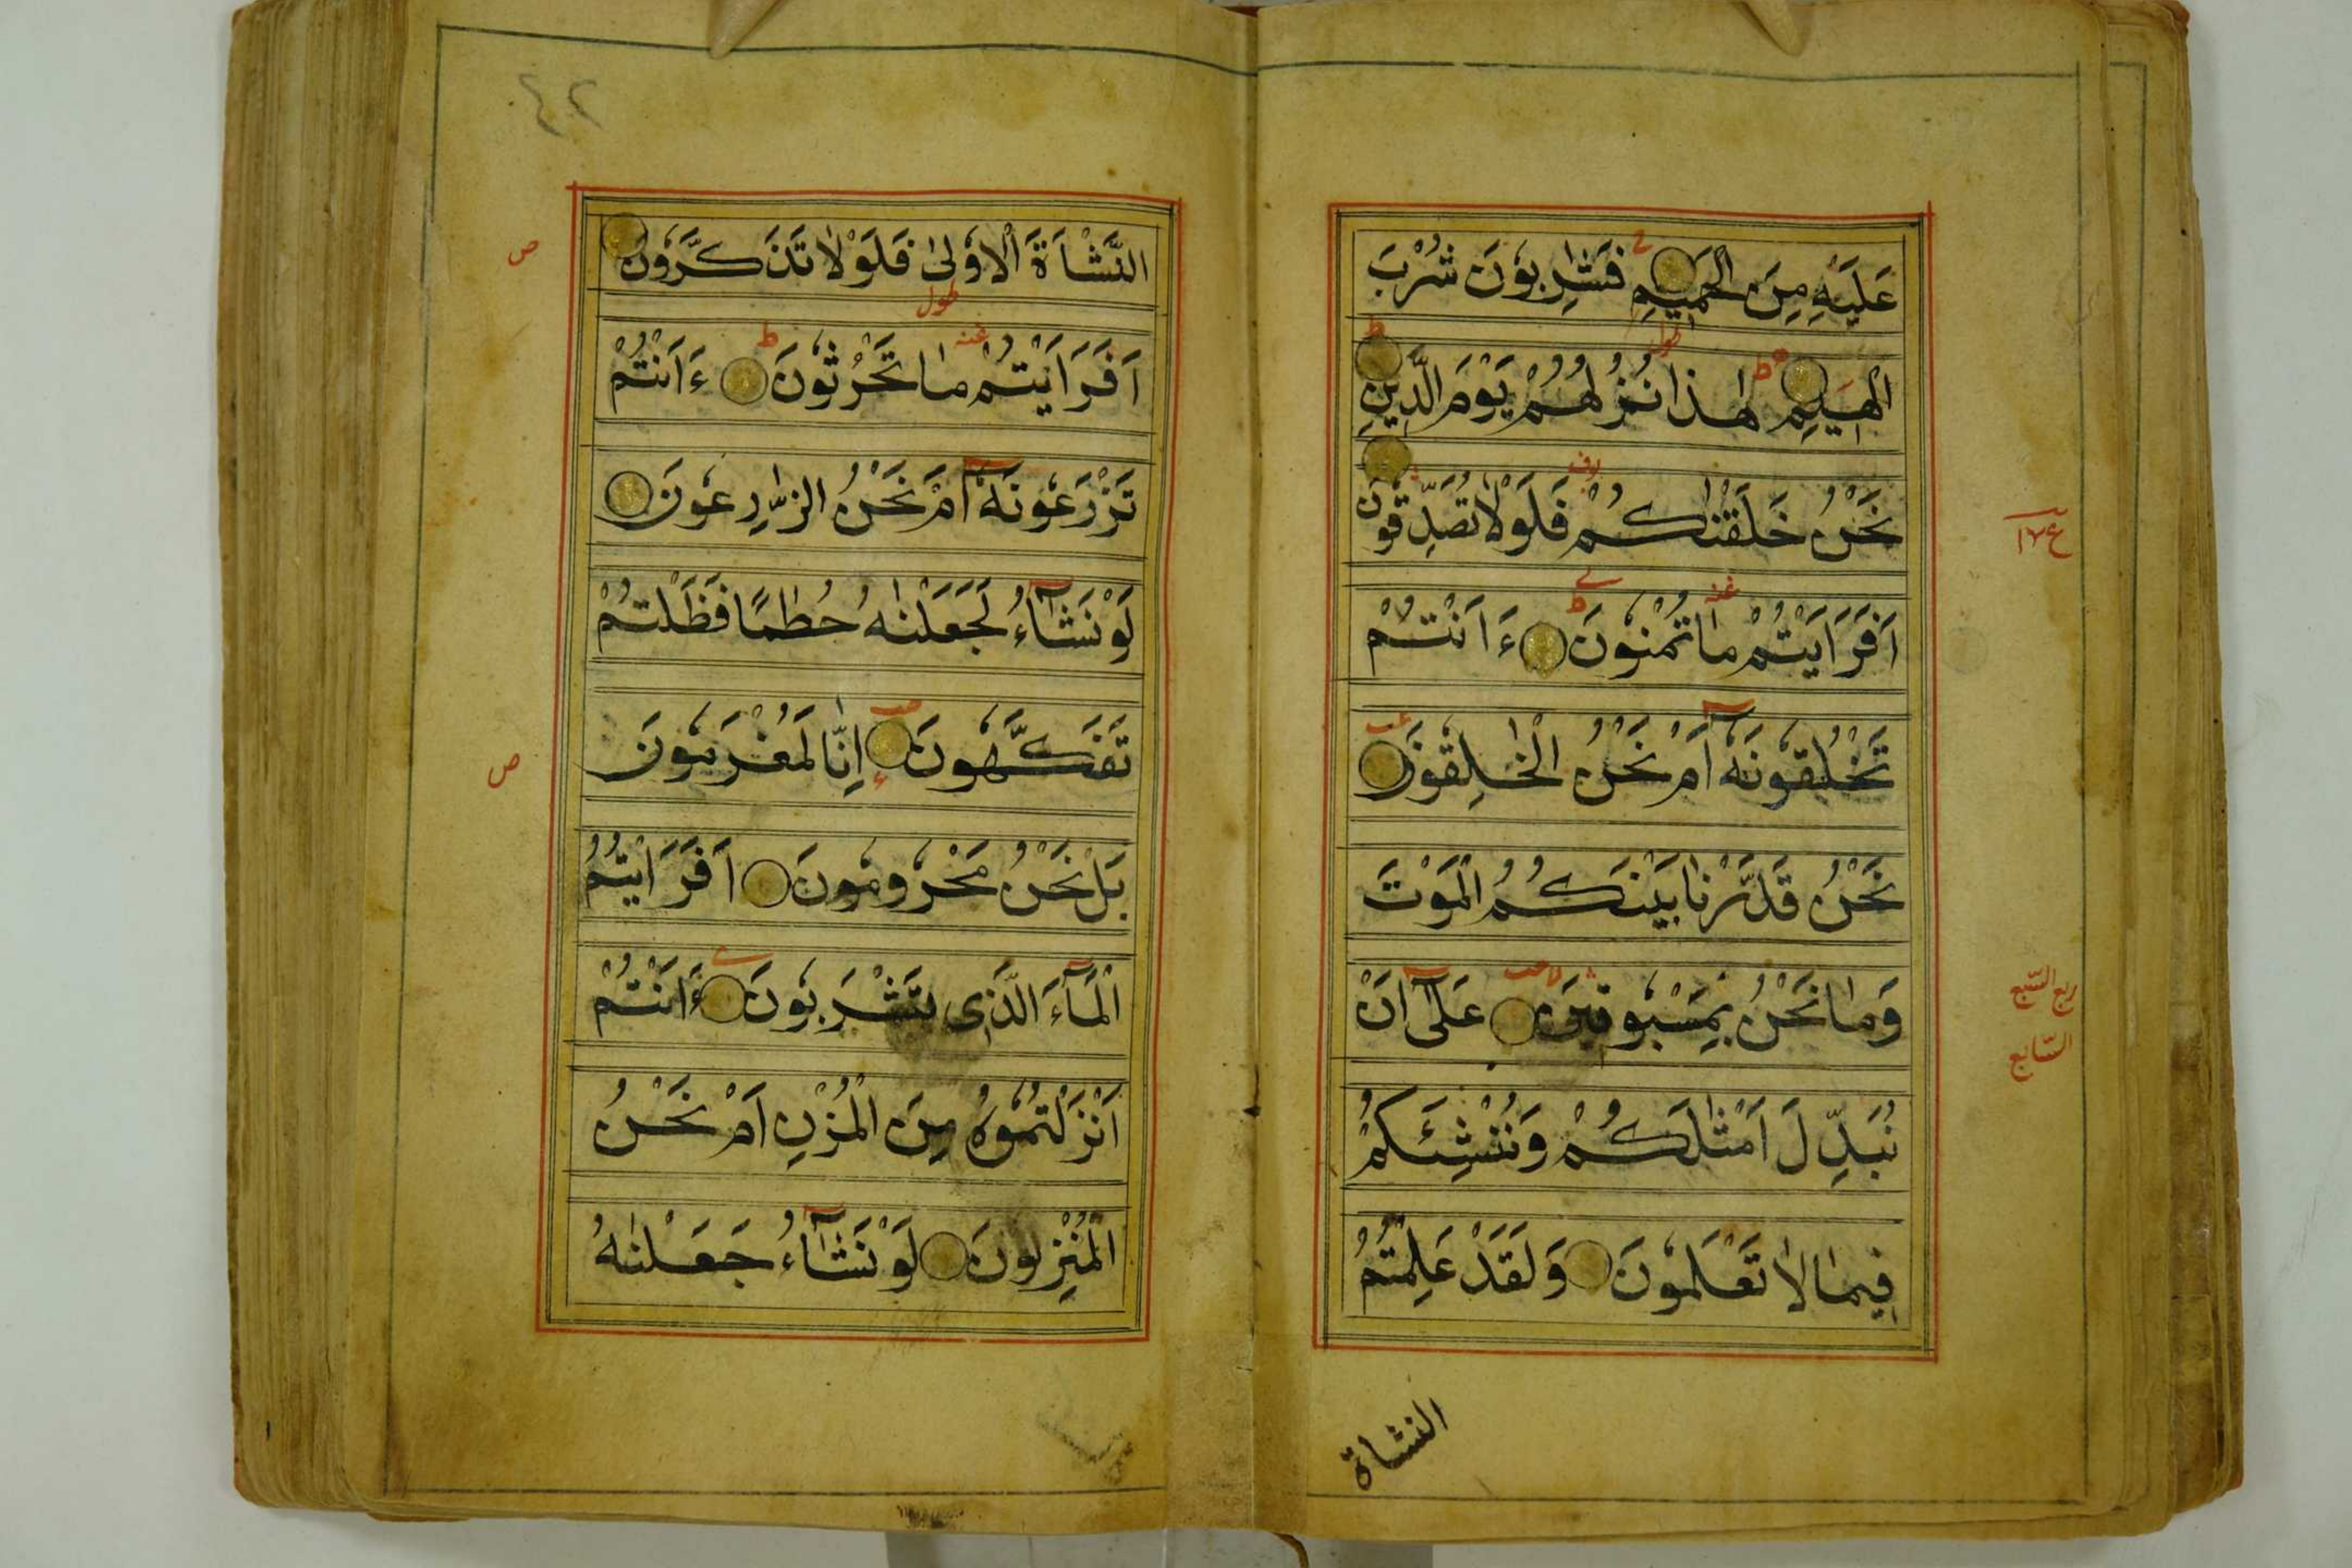 عَلَيْهِ مِنَ الْحَمِيْمِ فَشٰرِبُوْنَ شُرْبَ
الْهِيْمِ هٰذَا نُزُلُهُمْ يَوْمَ الدِّيْنِ
نَحْنُ خَلَقْنٰكُمْ فَلَوْلَا تُصَدِّقُوْنَ
اَفَرَاَيْتُمْ مَا تُمْنُوْنَ ءَاَنْتُمْ
تَخْلُقُوْنَهٗ اَمْ نَحْنُ الْخٰلِقُوْنَ
نَحْنُ قَدَّرْنَا بَيْنَكُمُ الْمَوْتَ
وَمَا نَحْنُ بِمَسْبُوْقِيْنَ عَلٰٓى اَنْ
نُبَدِّلَ اَمْثٰلَكُمْ وَنُنْشِئَكُمْ
فِيْمَا لَا تَعْلَمُوْنَ وَلَقَدْ عَلِمْتُمُ
النشاة
ربع السّبع
السّابع
٤٢
النَّشْاَةَ الْاُوْلٰى فَلَوْلَا تَذَكَّرُوْنَ
ص
اَفَرَاَيْتُمْ مَا تَحْرُثُوْنَ ءَاَنْتُمْ
تَزْرَعُوْنَهٗٓ اَمْ نَحْنُ الزّٰرِعُوْنَ
لَوْ نَشَآءُ لَجَعَلْنٰهُ حُطٰمًا فَظَلْتُمْ
تَفَكَّهُوْنَ اِنَّا لَمُغْرَمُوْنَ
ص
بَلْ نَحْنُ مَحْرُوْمُوْنَ اَفَرَاَيْتُمُ
الْمَآءَ الَّذِى تَشْرَبُوْنَ ءَاَنْتُمْ
اَنْزَلْتُمُوْهُ مِنَ الْمُزْنِ اَمْ نَحْنُ
الْمُنْزِلُوْنَ لَوْ نَشَآءُ جَعَلْنٰهُ